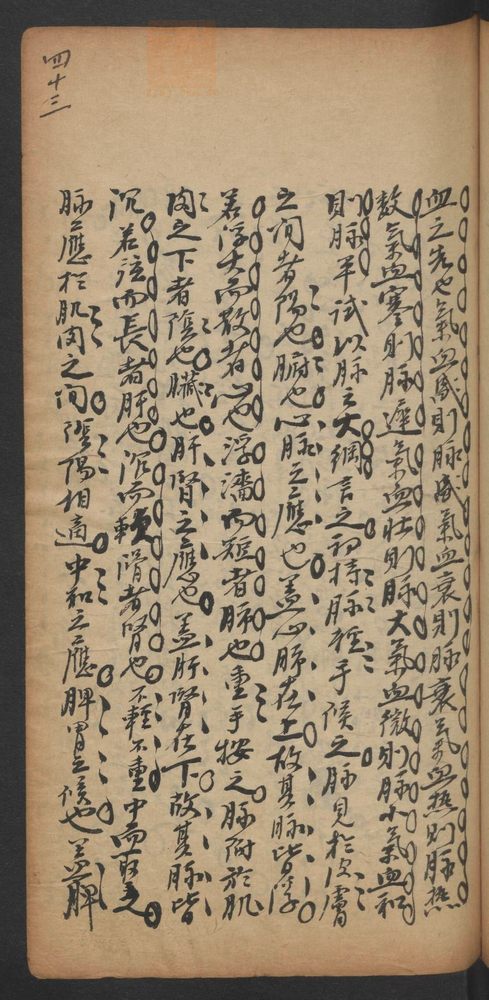 血之先也氣血盛則脉盛氣血衰則脉衰氣血熱則脉熱
數氣血寒則脉遲氣血壯則脉大氣血微則脉小氣血和
則脉平試以脉之大綱言之初持脉輕手候之脉見於皮膚
之間者陽也腑也心肺之應也蓋心肺在上故其脉皆浮
若浮大而散者心也浮濇而短者肺也重手按之脉附於肌
肉之下者陰也臟也肝腎之應也蓋肝腎在下故其脉皆
沉若弦而長者肝也沉而軟滑者腎也不輕不重中而取之
脉應於肌肉之間陰陽相適中和之應脾胃之候也蓋脾
四十三